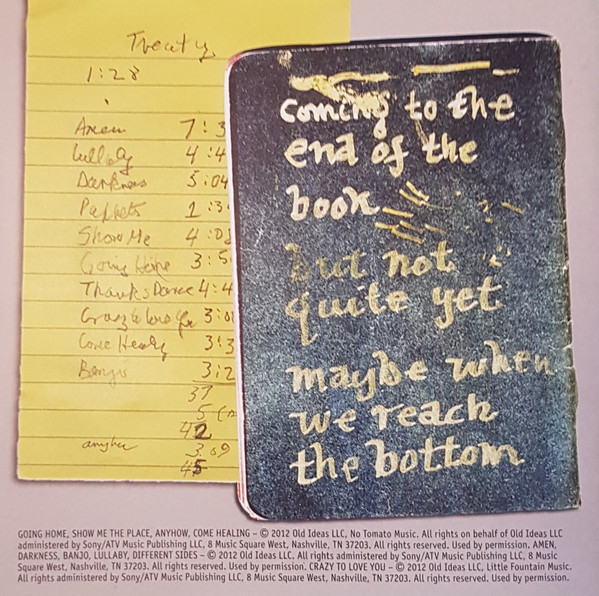 Treaty
1:28
Amen 7:3
Lullaby 4:4
Darkness 5:04
Puppets 1:3
Show Me 4:08
Going Home 3:5
Thanks Dance 4:4
Crazy to love you 3:0
Come Healing 3:3
Banjo 3:2
37
5
42
anyhow 3.09
45
coming to the
end of the
book
but not
quite yet
maybe when
we reach
the bottom
GOING HOME, SHOW ME THE PLACE, ANYHOW, COME HEALING – © 2012 Old Ideas LLC, No Tomato Music. All rights on behalf of Old Ideas LLC
administered by Sony/ATV Music Publishing LLC, 8 Music Square West, Nashville, TN 37203. All rights reserved. Used by permission. AMEN,
DARKNESS, BANJO, LULLABY, DIFFERENT SIDES – © 2012 Old Ideas LLC. All rights administered by Sony/ATV Music Publishing LLC, 8 Music
Square West, Nashville, TN 37203. All rights reserved. Used by permission. CRAZY TO LOVE YOU – © 2012 Old Ideas LLC, Little Fountain Music.
All rights administered by Sony/ATV Music Publishing LLC, 8 Music Square West, Nashville, TN 37203. All rights reserved. Used by permission.